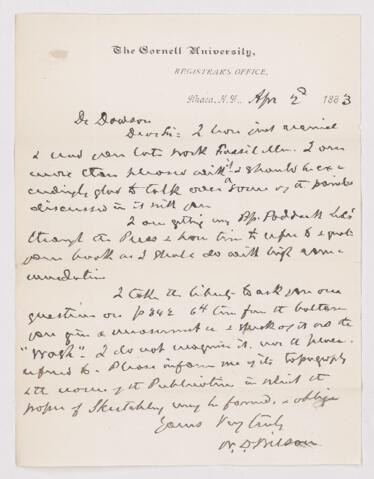 The Cornell University,
REGISTRAR'S OFFICE,
Ithaca, N.Y., Apr 2d 1883
Dr Dawson
Dear Sir:- I have just received
& read your late work Fossil Men. I am
more than pleased with it & should be ex-
ceedingly glad to talk over some of the points
discussed in it with you
I am getting my
through the Press & have time to refer to & quote
your book as I shall do with high com-
mendation
I take the liberty to ask you one
question on p 242 6th line from the bottom
you give a measurement & speak of it as the
"Wash". I do not recognise it, nor the place
referred to. Please inform me of its topography
& the name of the Publication in which the
paper of Sketchley may be found, & oblige
Yours Very truly
W. D. Wilson